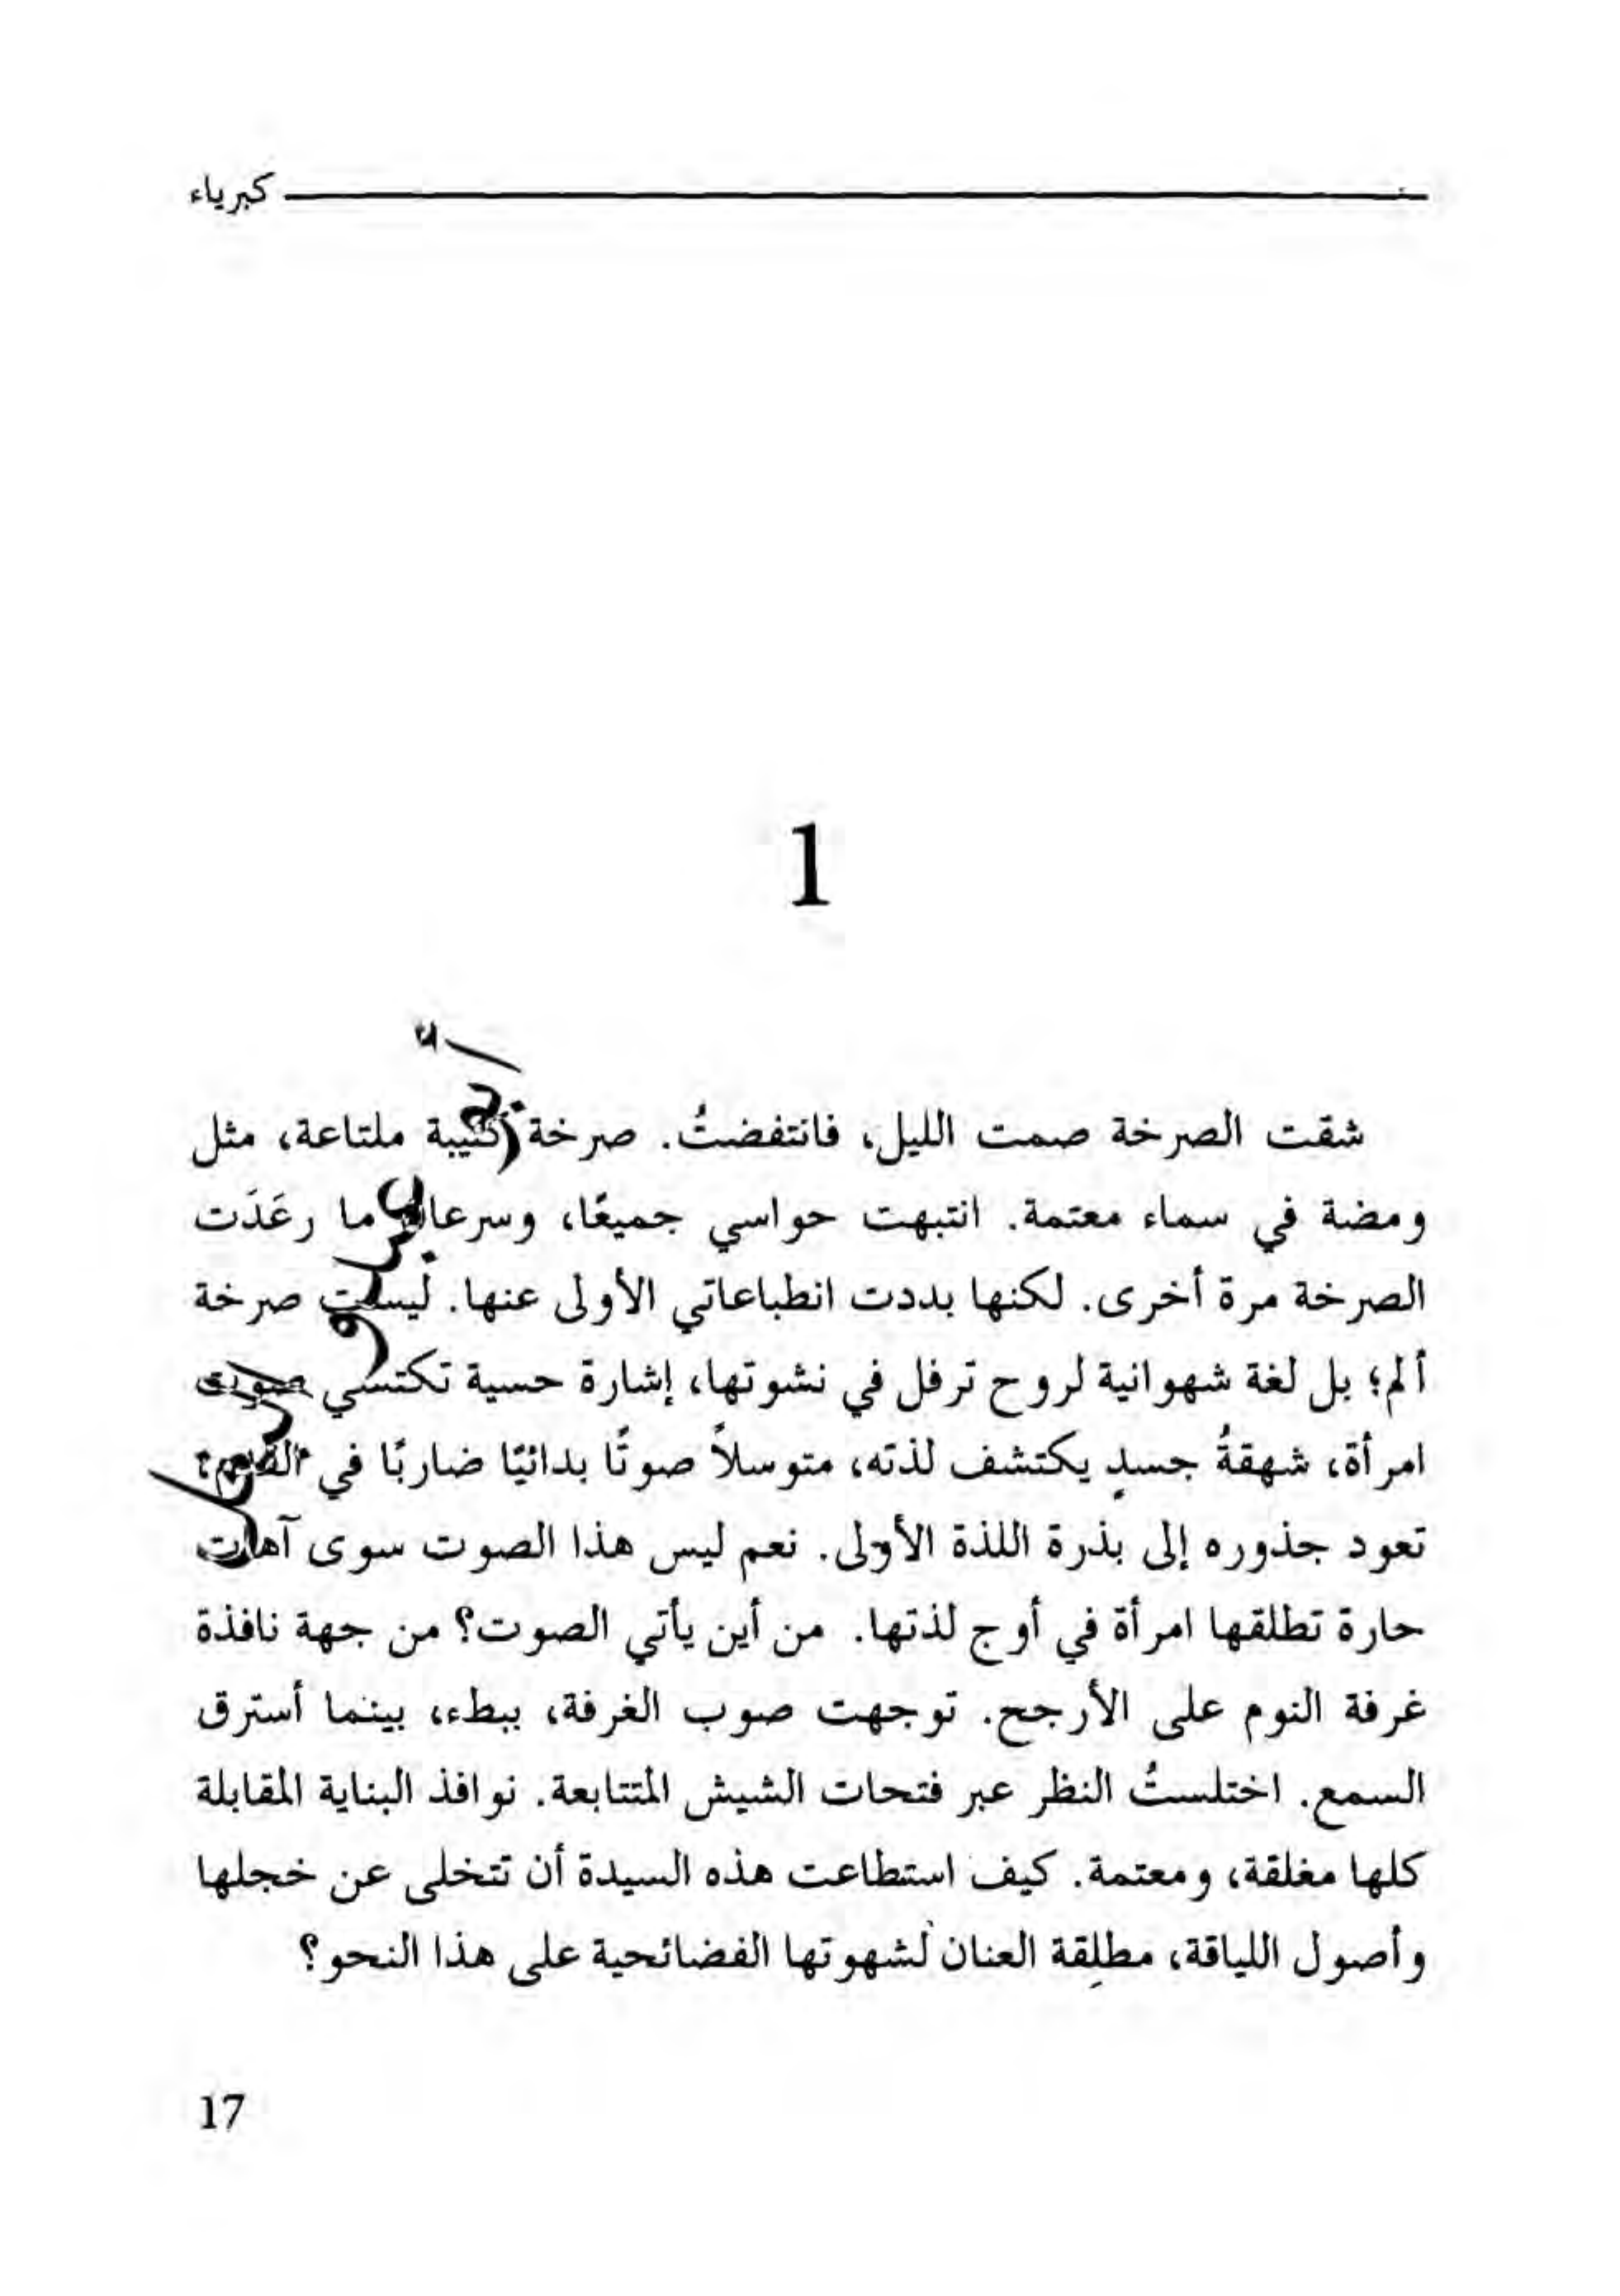 كبرياء
1
شقت الصرخة صمت الليل، فانتفضتُ. صرخة كئيبة ملتاعة، مثل
ومضة في سماء معتمة. انتبهت حواسي جميعًا، وسرعان ما رعَدَت
الصرخة مرة أخرى. لكنها بددت انطباعاتي الأولى عنها. ليست صرخة
ألم؛ بل لغة شهوانية لروح ترفل في نشوتها، إشارة حسية تكتسي صوت
امرأة، شهقةُ جسدٍ يكتشف لذته، متوسلاً صوتًا بدائيًا ضاربًا في القدم؛
تعود جذوره إلى بذرة اللذة الأولى. نعم ليس هذا الصوت سوى آهات
حارة تطلقها امرأة في أوج لذتها. من أين يأتي الصوت؟ من جهة نافذة
غرفة النوم على الأرجح. توجهت صوب الغرفة، ببطء، بينما أسترق
السمع. اختلستُ النظر عبر فتحات الشيش المتتابعة. نوافذ البناية المقابلة
كلها مغلقة، ومعتمة. كيف استطاعت هذه السيدة أن تتخلى عن خجلها
وأصول اللياقة، مطلِقة العنان لشهوتها الفضائحية على هذا النحو؟
17